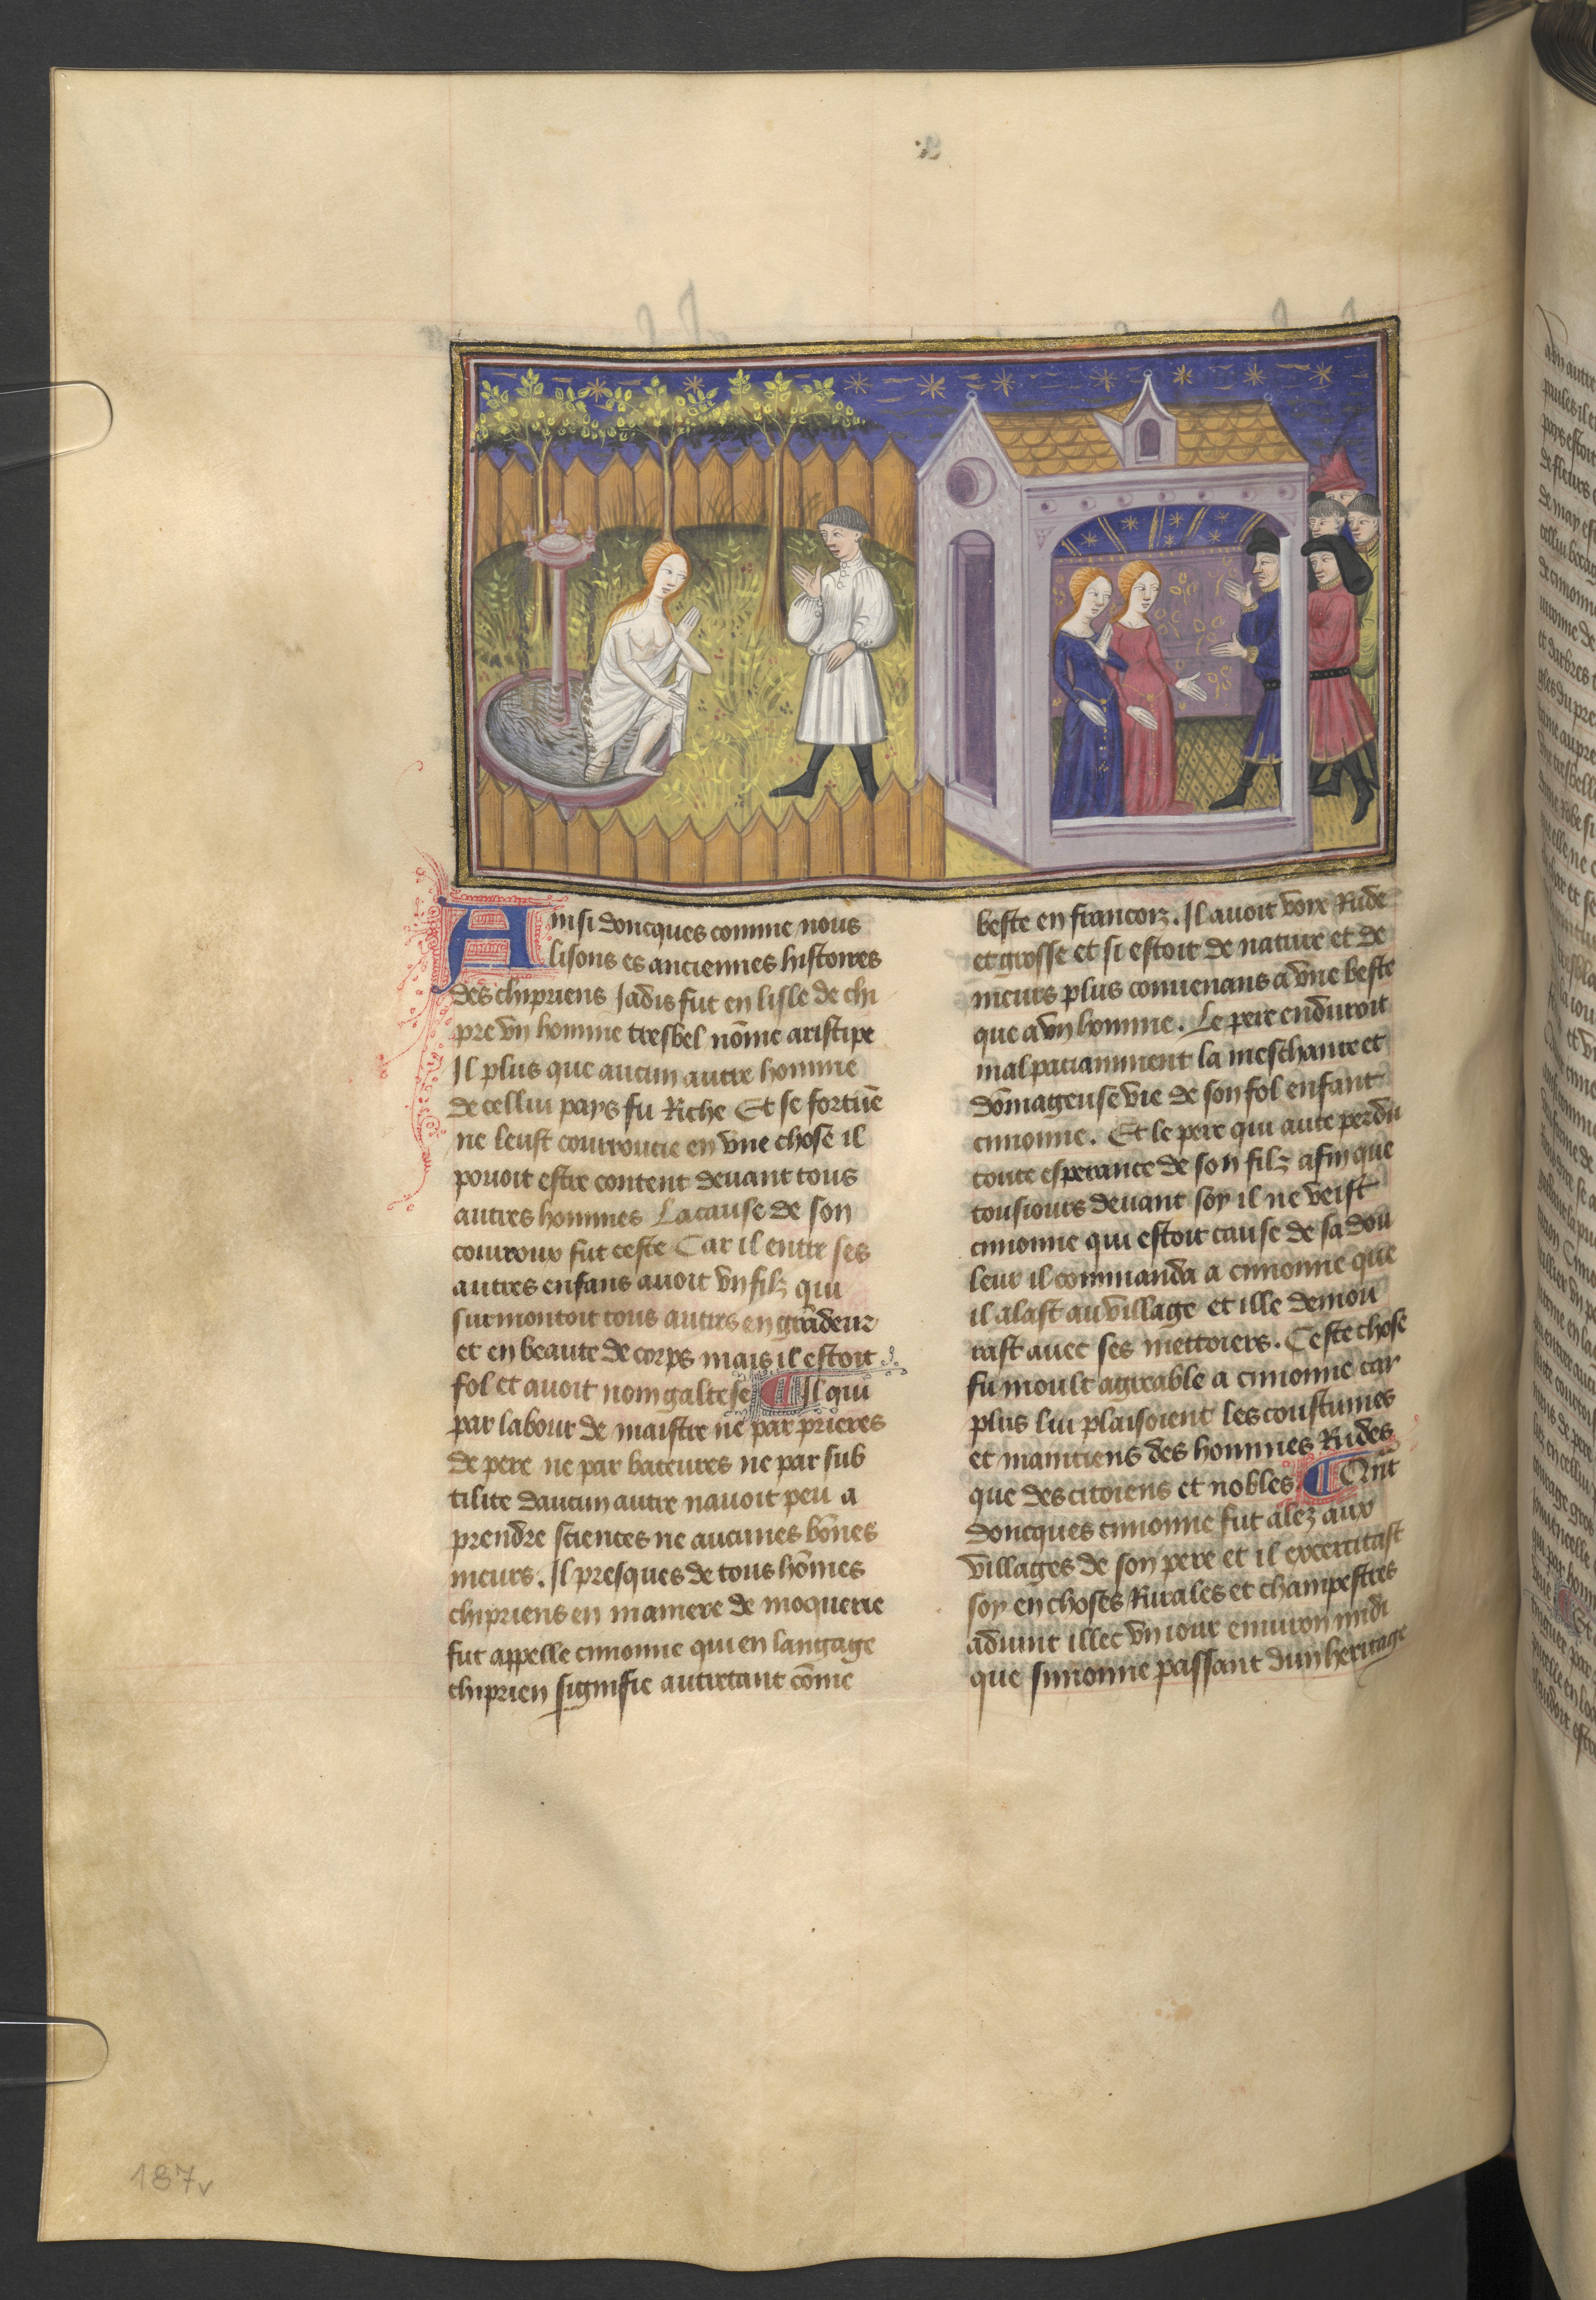 Ainsi doncques comme nous
lisons es anciennes histoires
des chipriens Jadis fut en lisle de chi
pre vn homme tresbel nõme aristipe
Il plus que aucun autre homme
de cellui pays fu Riche Et se fortune
ne leust courroucie en vne chose il
pouoit estre content deuant tous
autres hommes La cause de son
courroux fut ceste Car il entre ses
autres enfans auoit vn filz qui
surmontoit tous autres en grãdeur
et en beaute de corps mais il estoit
fol et auoit nom galtese Il qui
par labour de maistre ne par prieres
de pere ne par bateures ne par sub
tilite daucun autre nauoit peu a
prendre sciences ne aucunes bõnes
meurs. Il presques de tous hõmes
chipriens en maniere de moquerie
fut appelle cimonne qui en langage
chiprien signifie autretant cõme
beste en francoiz. Il auoit voix Rude
et grosse et si estoit de nature et de
meurs plus conuenans a vne beste
que a vn homme. Le pere enduroit
mal paciamment la meschante et
dõmageuse vie de son fol enfant
cimonne. Et le pere qui auoit perdu
toute esperance de son filz afin que
tousiours deuant soy il ne veist
cimonne qui estoit cause de sa dou
leur il commanda a cimonne que
il alast au village et ille demou
rast auec ses mettoiers. Ceste chose
fu moult agreable a cimonne car
plus lui plaisoient les coustumes
et maintiens des hommes Rudes
que des citoiens et nobles Quãt
doncques cimonne fut alez aux
villages de son pere et il exercitast
soy en choses Rurales et champestres
aduint illec vn iour enuiron midi
que simonne passant dun heritage
187v